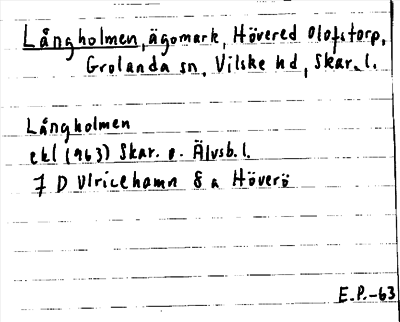 Långholmen, ägomark, Hövered Olofstorp,
Grolanda sn, Vilske hd, Skar. l.
Långholmen
ekl (1963) Skar. o. Älvsb. l.
7 D Ulricehamn 8 a Höverö
E.P.-63